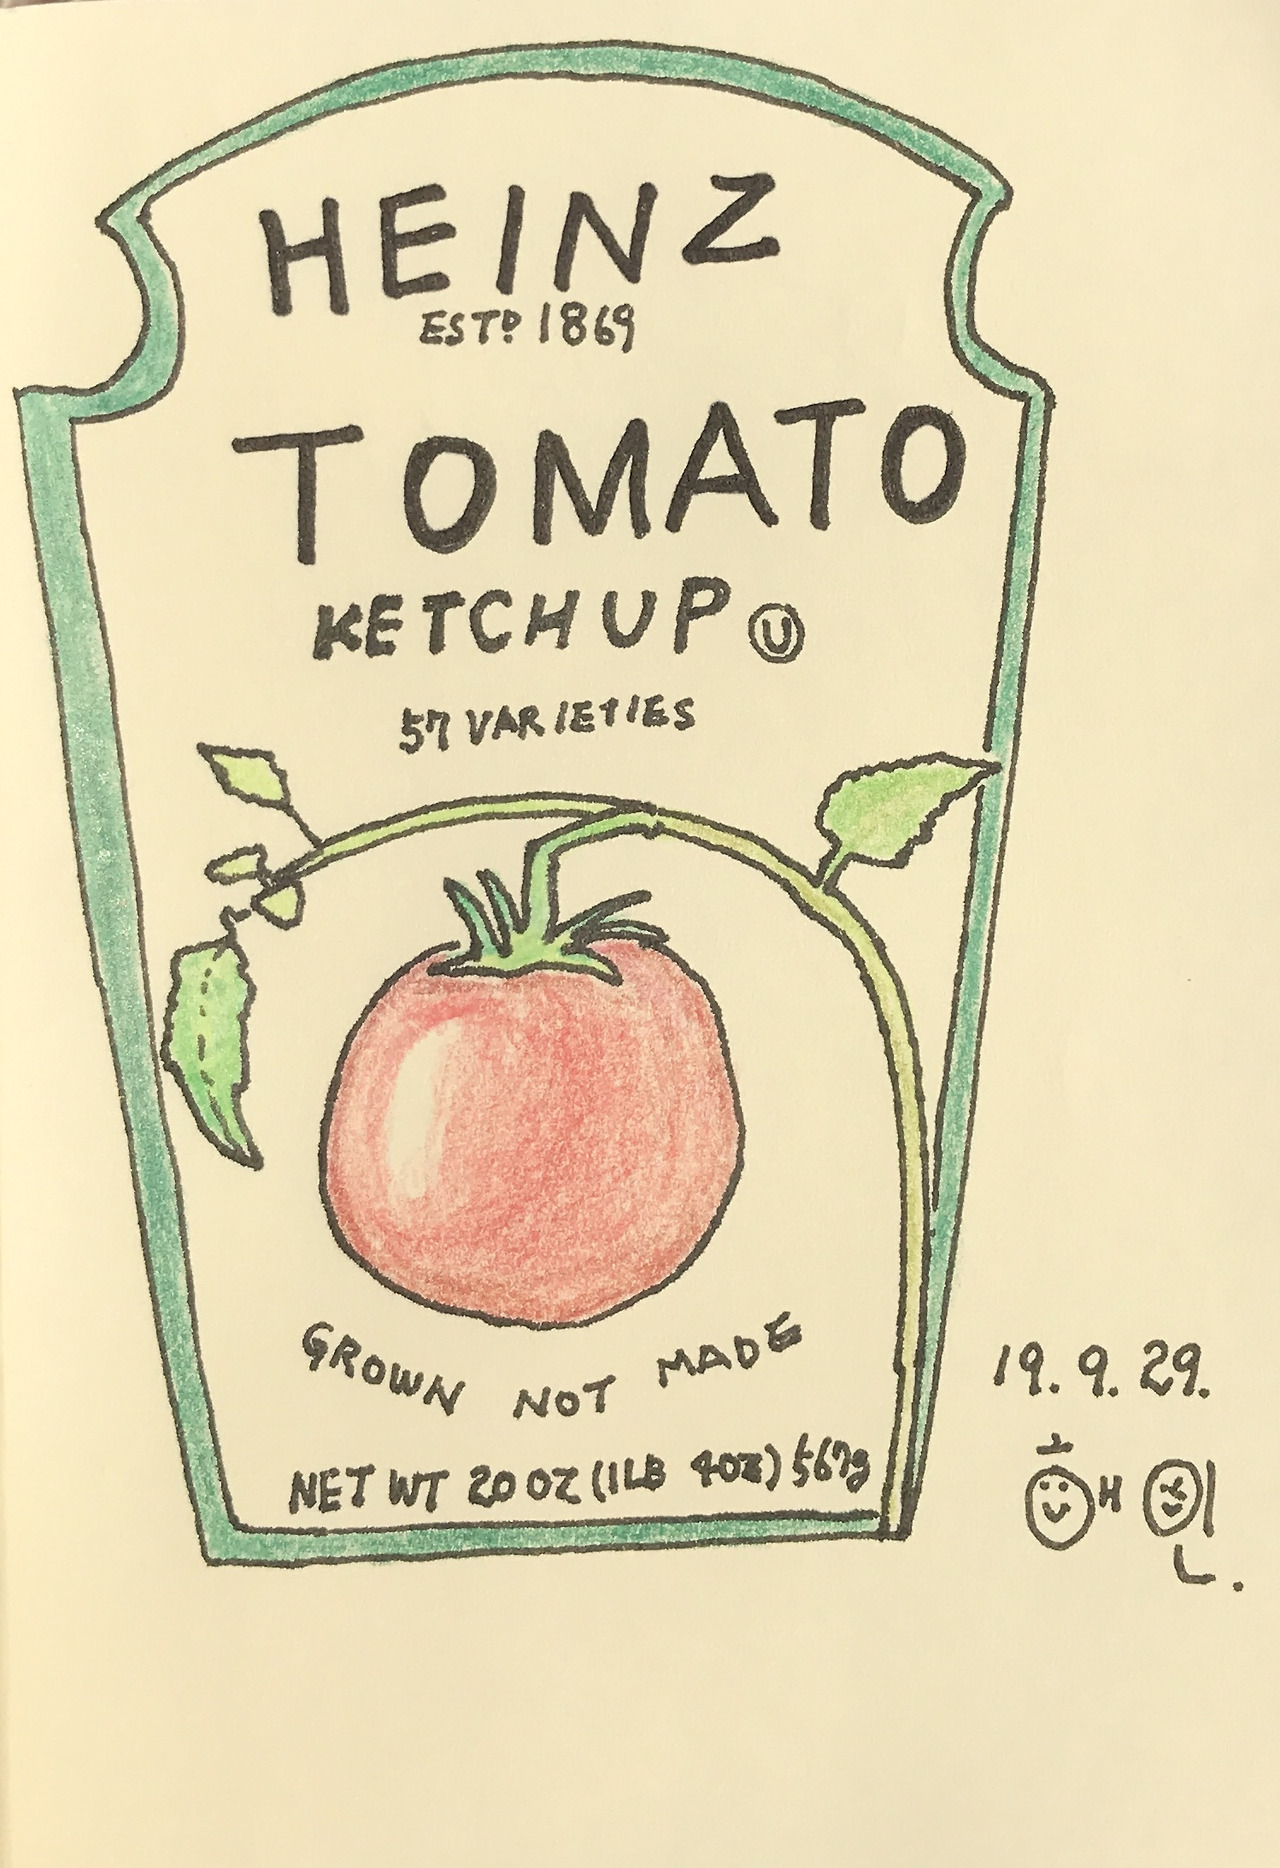 HEINZ
ESTD 1869
TOMATO
KETCHUP Ⓤ
57 VARIETIES
GROWN NOT MADE
NET WT 20 OZ (1LB 4OZ) 567g
19. 9. 29.